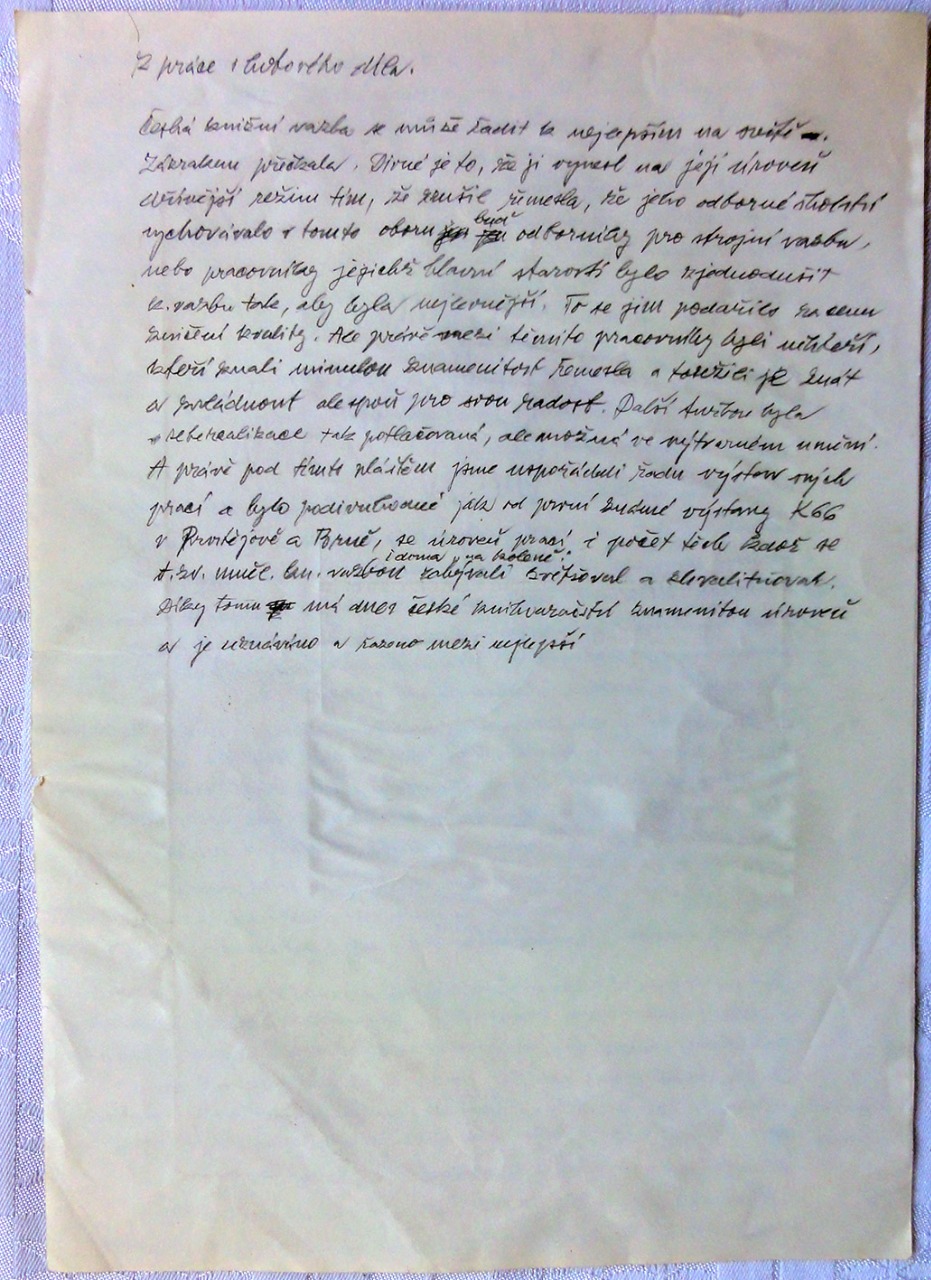 Z práce i hotového díla.
Česká knižní vazba se může řadit k nejlepším na světě.
Zázrakem přečkala. Divné je to, že ji vynesl na její úroveň
dřívější režim tím, že zrušil řemesla, že jeho odborné školství
vychovávalo v tomto oboru buď odborníky pro strojní vazbu,
nebo pracovníky jejichž hlavní starostí bylo zjednodušit
k. vazbu tak, aby byla nejlevnější. To se jim podařilo za cenu
snížení kvality. Ale právě mezi těmito pracovníky byli někteří,
kteří znali minulou znamenitost řemesla a toužili je znát
a zvládnout alespoň pro svou radost. Další touhou byla
seberealizace tak potlačovaná, ale možná ve výtvarném umění.
A právě pod tímto pláštěm jsme uspořádali řadu výstav svých
prací a bylo podivuhodné jak od první skupiny výstavy K66
v Prostějově a Brně, se úroveň prací i počet těch kdož se
t.zv. uměl. kn. vazbou i doma "na koleně" zabývali zvětšoval a zkvalitňoval.
Díky tomu má dnes české knihvazačství znamenitou úroveň
a je uznáváno a řazeno mezi nejlepší